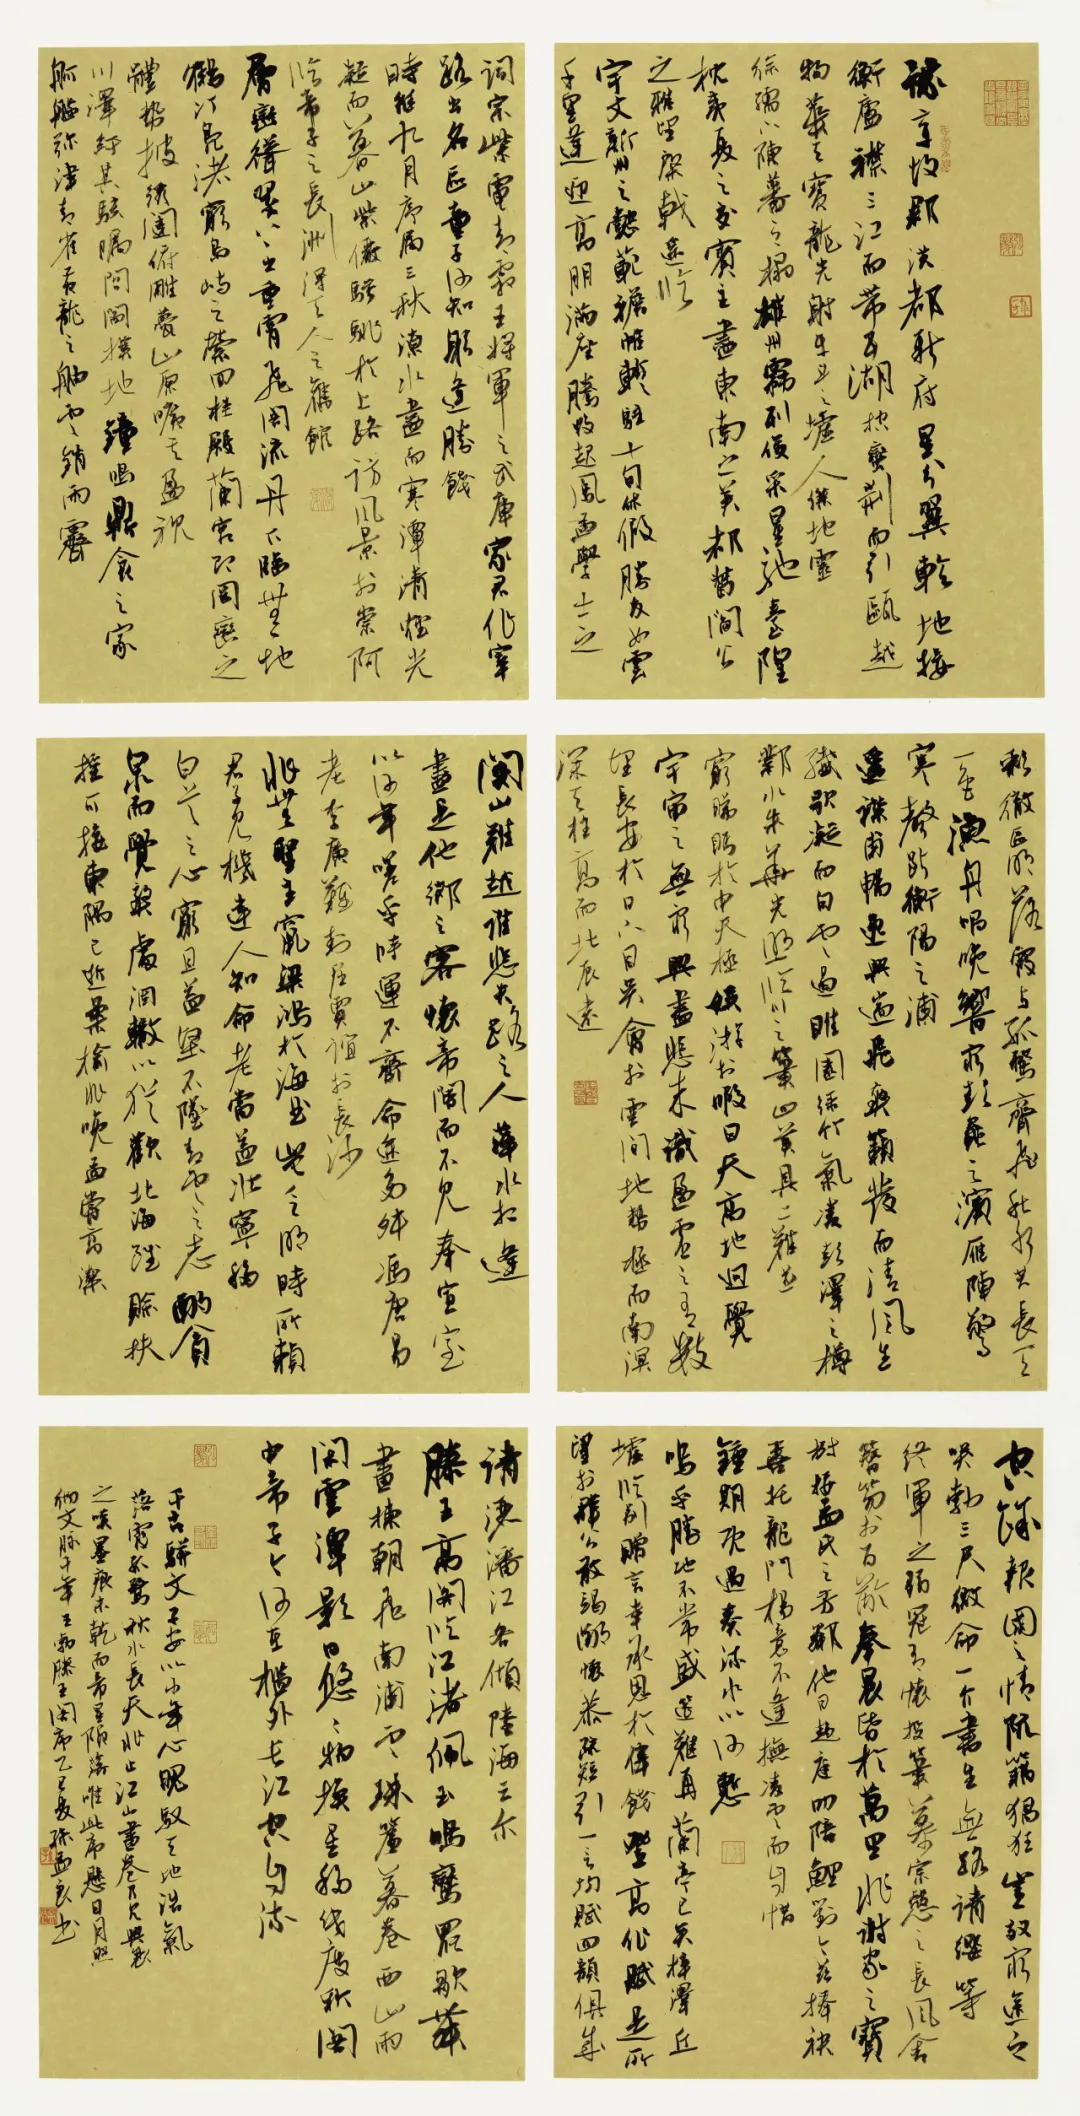 豫章故郡洪都新府星分翼軫地接
衡廬襟三江而帶五湖控蠻荊而引甌越
物華天寶龍光射牛斗之墟人傑地靈
徐孺下陳蕃之榻雄州霧列俊采星馳臺隍
枕夷夏之交賓主盡東南之美都督閻公
之雅望棨戟遙臨
宇文新州之懿範襜帷暫駐十旬休假勝友如雲
千里逢迎高朋滿座騰蛟起鳳孟學士之
詞宗紫電青霜王將軍之武庫家君作宰
路出名區童子何知躬逢勝餞
時維九月序屬三秋潦水盡而寒潭清煙光
凝而暮山紫儼驂騑於上路訪風景於崇阿
臨帝子之長洲得天人之舊館
層巒聳翠上出重霄飛閣流丹下臨無地
鶴汀鳧渚窮島嶼之縈回桂殿蘭宮即岡巒之
體勢披綉闥俯雕甍山原曠其盈視
川澤紆其駭矚閭閻撲地鐘鳴鼎食之家
舸艦弥津青雀黃龍之舳雲銷雨霽
彩徹區明落霞與孤鶩齊飛秋水共長天
一色漁舟唱晚響窮彭蠡之濱雁陣驚
寒聲斷衡陽之浦
遙襟甫暢逸興遄飛爽籟發而清風生
纖歌凝而白雲遏睢園綠竹氣凌彭澤之樽
鄴水朱華光照臨川之筆四美具二難並
窮睇眄於中天極娛游於暇日天高地迥覺
宇宙之無窮興盡悲來識盈虛之有數
望長安於日下目吳會於雲間地勢極而南溟
深天柱高而北辰遠
關山難越誰悲失路之人萍水相逢
盡是他鄉之客懷帝閽而不見奉宣室
以何年嗟乎時運不齊命途多舛馮唐易
老李廣難封屈賈誼於長沙
非無聖主竄梁鴻於海曲豈乏明時所賴
君子見機達人知命老當益壯寧移
白首之心窮且益堅不墜青雲之志酌貪
泉而覺爽處涸轍以猶歡北海雖賒扶
搖可接東隅已逝桑榆非晚孟嘗高潔
空餘報國之情阮籍猖狂豈效窮途之
哭勃三尺微命一介書生無路請纓等
終軍之弱冠有懷投筆慕宗愨之長風舍
簪笏於百齡奉晨昏於萬里非謝家之寶
樹接孟氏之芳鄰他日趨庭叨陪鯉對今茲捧袂
喜托龍門楊意不逢撫凌雲而自惜
鍾期既遇奏流水以何慙
嗚乎勝地不常盛筵難再蘭亭已矣梓澤丘
墟臨別贈言幸承恩於偉餞登高作賦是所
望於群公敢竭鄙懷恭疏短引一言均賦四韻俱成
請灑潘江各傾陸海云尔
滕王高閣臨江渚佩玉鳴鸞罷歌舞
畫棟朝飛南浦雲珠簾暮卷西山雨
閑雲潭影日悠悠物換星移幾度秋閣
中帝子今何在檻外長江空自流
千古駢文王子安以少年心魄馭天地浩氣
落霞孤鶩秋水長天非止江山畫卷
之嘆墨痕未乾而希星隕落唯此序懸日月照
文脉千年王勃滕王閣序乙巳孟良書